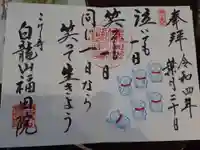 奉拝
令和四年
葉月三十日
泣いても一日
笑っても一日
同じ一日なら
笑って生きよう
白龍山福田院